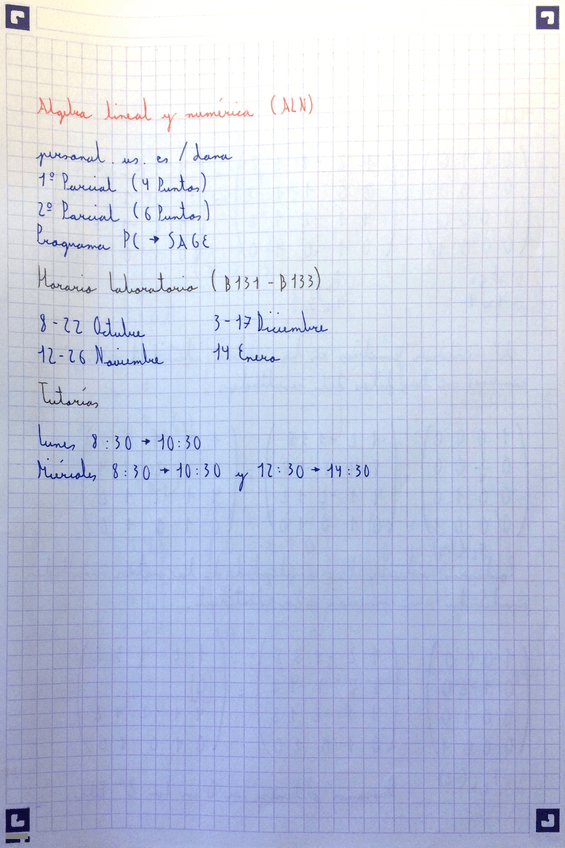 Algebra lineal y numérica (ALN)
personal.us.es/dana
1º Parcial (4 Puntos)
2º Parcial (6 Puntos)
Programa PC → SAGE
Horario Laboratorio (B131 - B133)
8-22 Octubre 3-17 Diciembre
12-26 Noviembre 14 Enero
Tutorías
Lunes 8:30 → 10:30
Miércoles 8:30 → 10:30 y 12:30 → 14:30